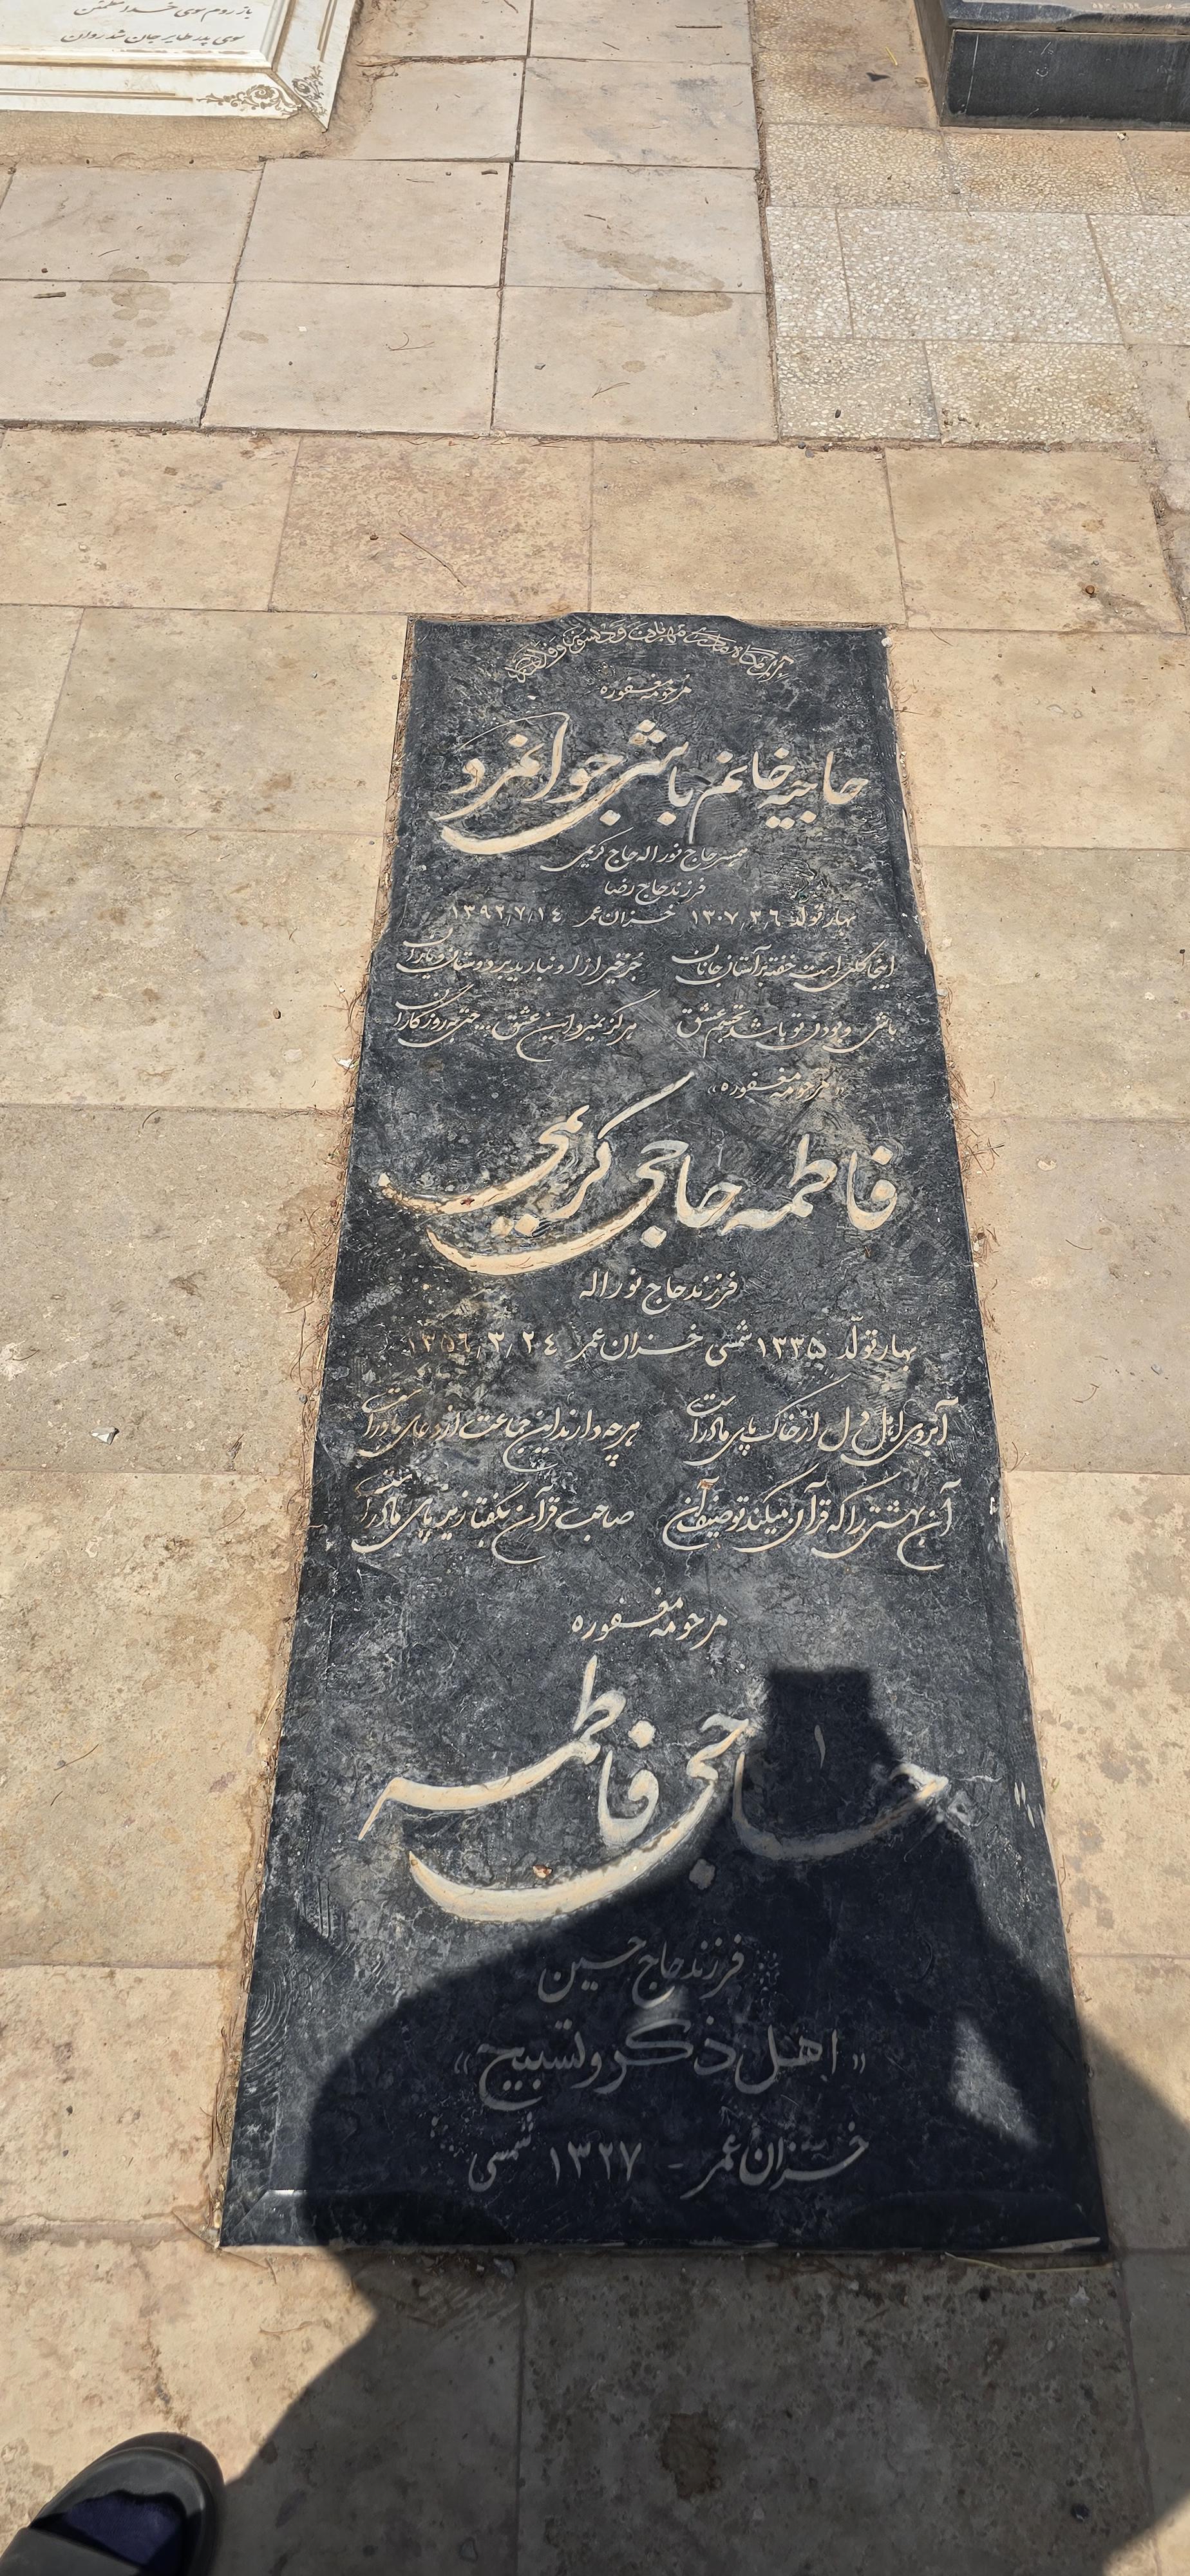 باز روم سوی خدا مطمئن
سوی پدر طایر جان شد روان
آرامگاه مادری مهربان و همسری وفادار
مرحومه مغفوره
حاجیه خانم باشی جوانمرد
همسر حاج نوراله حاج کریمی
فرزند حاج رضا
بهار تولد ۱۳۰۷/۳/۶ خزان عمر ۱۳۹۲/۷/۱۴
اینجا گلی است خفته بر آستان جانان جز خیر از او نبارید بر دوستان و یاران
باشی و بودن تو باشد تجسم عشق هرگز نمیرد این عشق .. حتی به روزگاران
«مرحومه مغفوره»
فاطمه حاجی کریمی
فرزند حاج نوراله
بهار تولّد ۱۳۳۵ شمسی خزان عمر ۱۳۵۶/۳/۲۴
آبروی اهل دل از خاک پای مادر است هرچه دارند این جماعت از دعای مادر است
آن بهشتی را که قرآن میکند توصیف آن صاحب قرآن بگفتا زیر پای مادر است
مرحومه مغفوره
حاجی فاطمه
فرزند حاج حسین
«اهل ذکر و تسبیح»
خزان عمر - ۱۳۲۷ شمسی